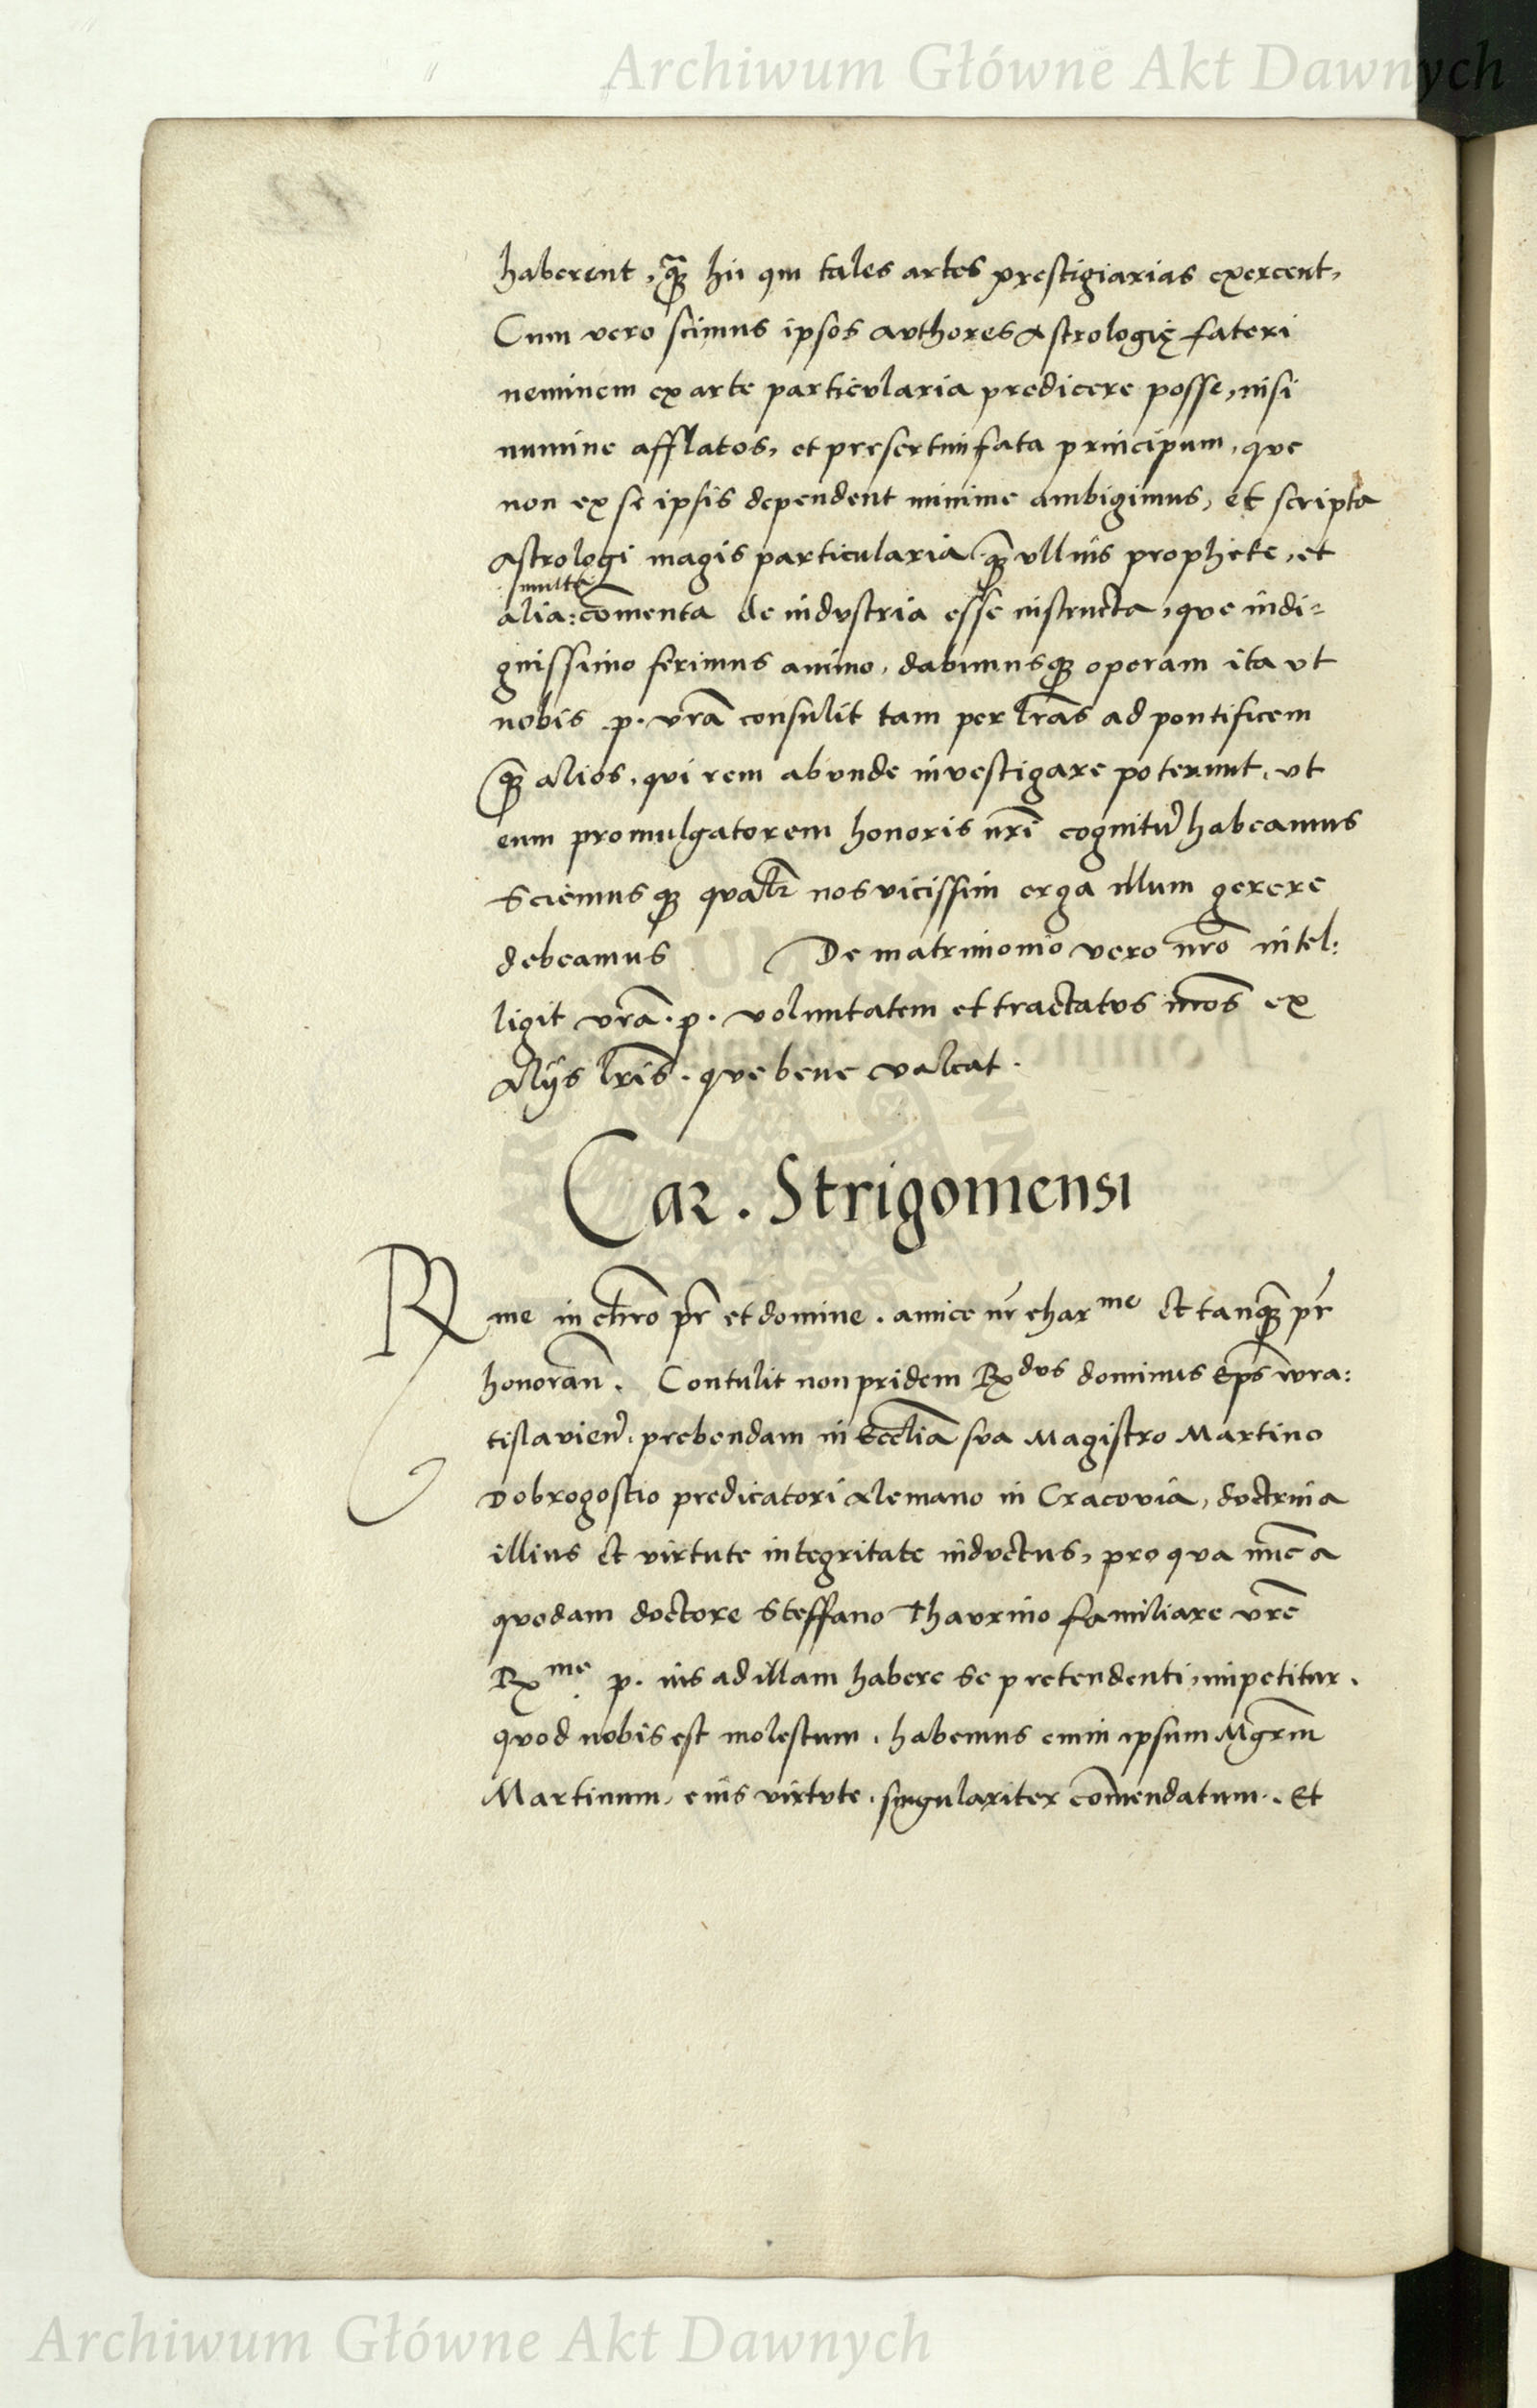 Archiwum Główne Akt Dawnych
haberent, quā hii qui tales artes prestigiarias exercent,
Cum vero scimus ipsos avthores Astrologię fateri
neminem ex arte particvlaria predicere posse, nisi
numine afflatos, et presertim fata principum, que
non ex se ipsis dependent minime ambigimus, et scripta
Astrologi magis particularia quā vllius prophete, et
multa
alia: cōmenta de indvstria esse instructa, que indi=
gnissimo ferimus animo, dabimusq; operam ita vt
nobis .p. vrā consulit tam per lrās ad pontificem
quā alios, qui rem abvnde investigare poterunt, vt
eum promulgatorem honoris nrī cognitū habeamus
Sciemusq; qualr̄ nos vicissim erga illum gerere
debeamus De matrimonio vero nrō intel:
ligit vrā .p. voluntatem et tractatvs nrōs ex
Alijs lrīs . que bene valeat .
Car . Strigoniensi
Rme in chrō pr̄ et domine . amice nr̄ charme et tanquā pr̄
honorān̄ . Contulit non pridem Rx dvs dominus Eps̄ wra:
tislavien̄ . prebendam in Eccliā sva Magistro Martino
Dobrogostio predicatori Alemano in Cracovia, doctrina
illius et virtute integritate indvctus, pro qva nūc a
qvodam doctore Steffano Thavrino familiare vrē
Rx me p. ius ad illam habere se pretendenti, impetitur .
qvod nobis est molestum . habemus enim ipsum Mgrm̄
Martinum, eius virtvte . singulariter cōmendatum . Et
Archiwum Główne Akt Dawnych